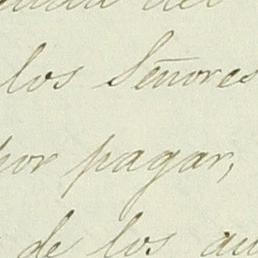 los Señores
por pagar,
de los au